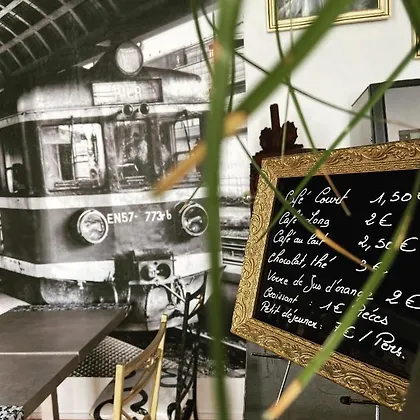 EN57-773rb
Café Court 1,50€
Café Long 2€
Café au lait 2,50€
Chocolat, thé 3€
Verre de Jus d'orange 2€
Croissant : 1€ Pièces
Petit déjeuner : 7€ / Pers.